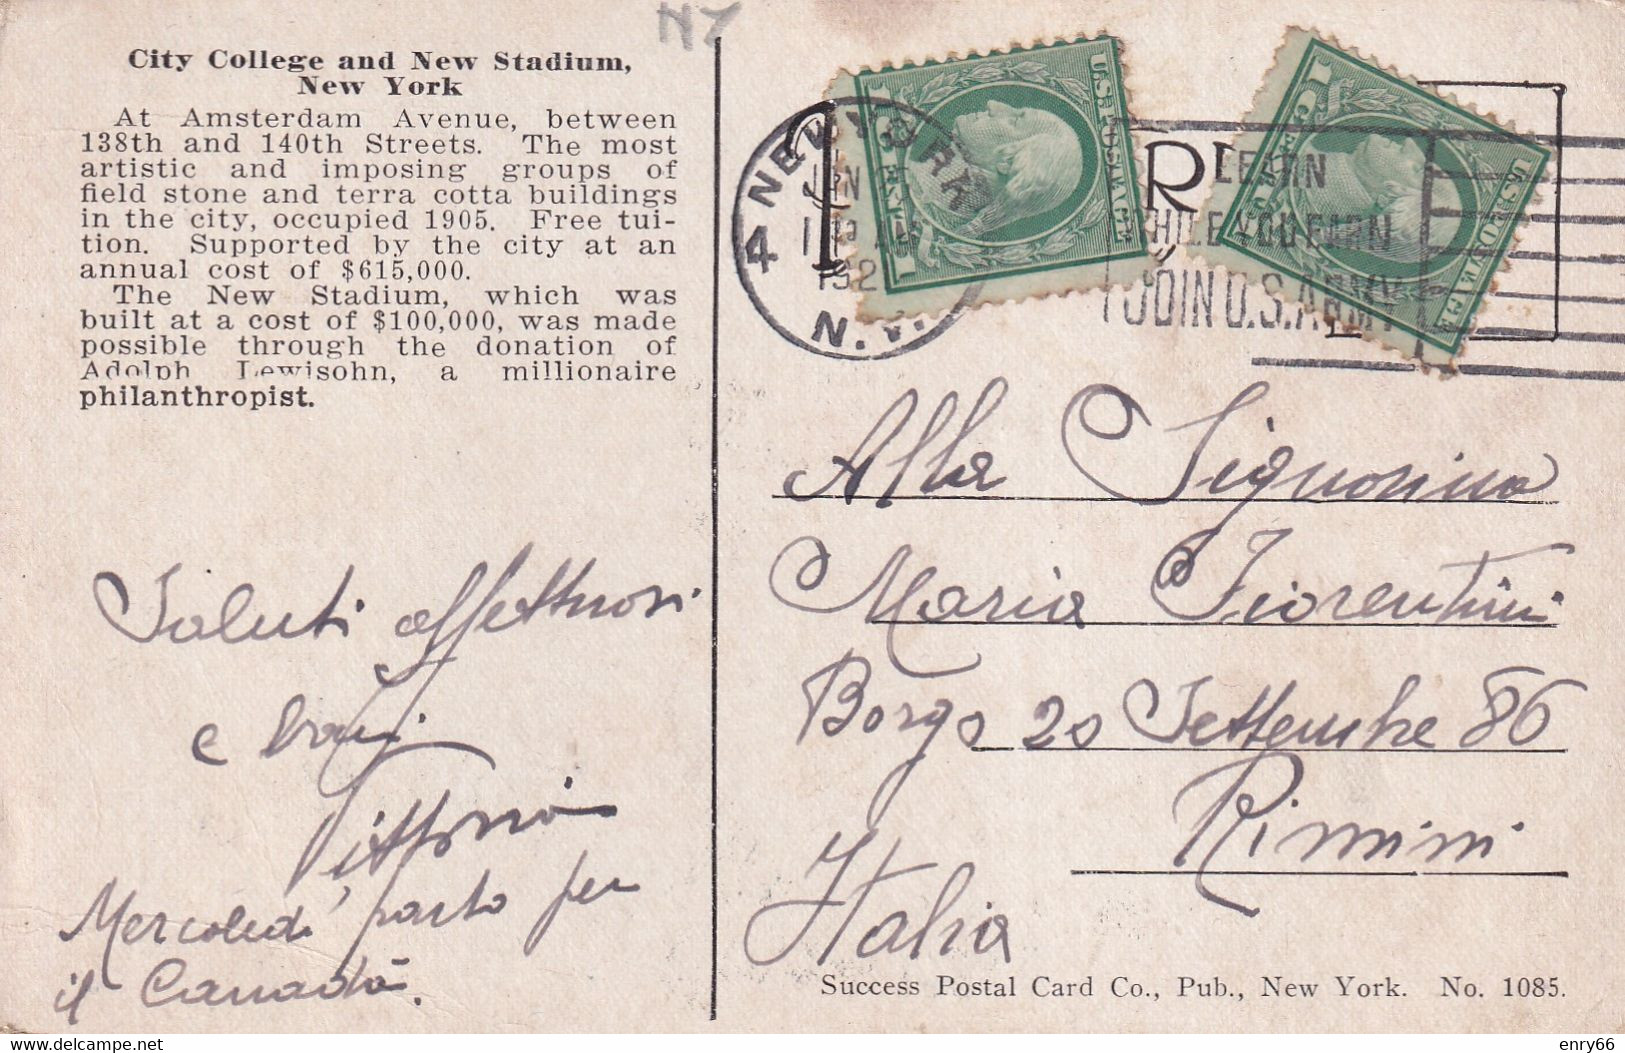 NY
City College and New Stadium,
New York
At Amsterdam Avenue, between
138th and 140th Streets. The most
artistic and imposing groups of
field stone and terra cotta buildings
in the city, occupied 1905. Free tui-
tion. Supported by the city at an
annual cost of $615,000.
The New Stadium, which was
built at a cost of $100,000, was made
possible through the donation of
Adolph Lewisohn, a millionaire
philanthropist.
Saluti affettuosi
e baci
Vittorio
Mercoledì parto per
il Canadà.
NEW YORK
JAN
192
N.Y.
U.S. POSTAGE
U.S. POSTAGE
LEARN
WHILE YOU EARN
JOIN U.S. ARMY
Alla Signorina
Maria Fiorentini
Borgo 20 Settembre 86
Rimini
Italia
Success Postal Card Co., Pub., New York. No. 1085.
delcampe.net
enry66